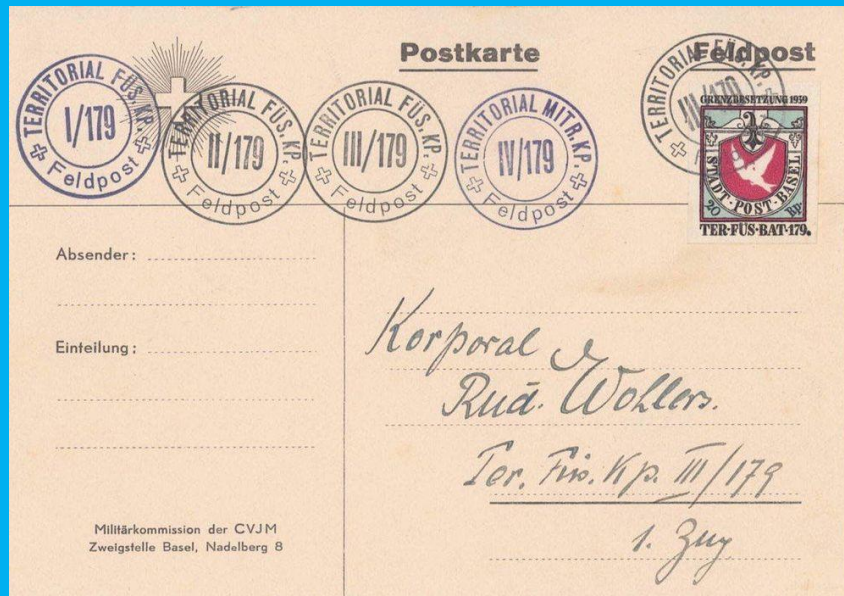 Postkarte
Feldpost
TERRITORIAL FÜS. KP.
I/179
Feldpost
TERRITORIAL FÜS. KP.
II/179
Feldpost
TERRITORIAL FÜS. KP.
III/179
Feldpost
TERRITORIAL MITR. KP.
IV/179
Feldpost
TERRITORIAL FÜS. KP.
III/179
GRENZBESETZUNG 1939
STADT·POST·BASEL
20 Rp.
TER·FÜS·BAT·179.
Absender:
Einteilung:
Militärkommission der CVJM
Zweigstelle Basel, Nadelberg 8
Korporal
Rud. Wohlers.
Ter. Füs. Kp. III/179
1. Zug